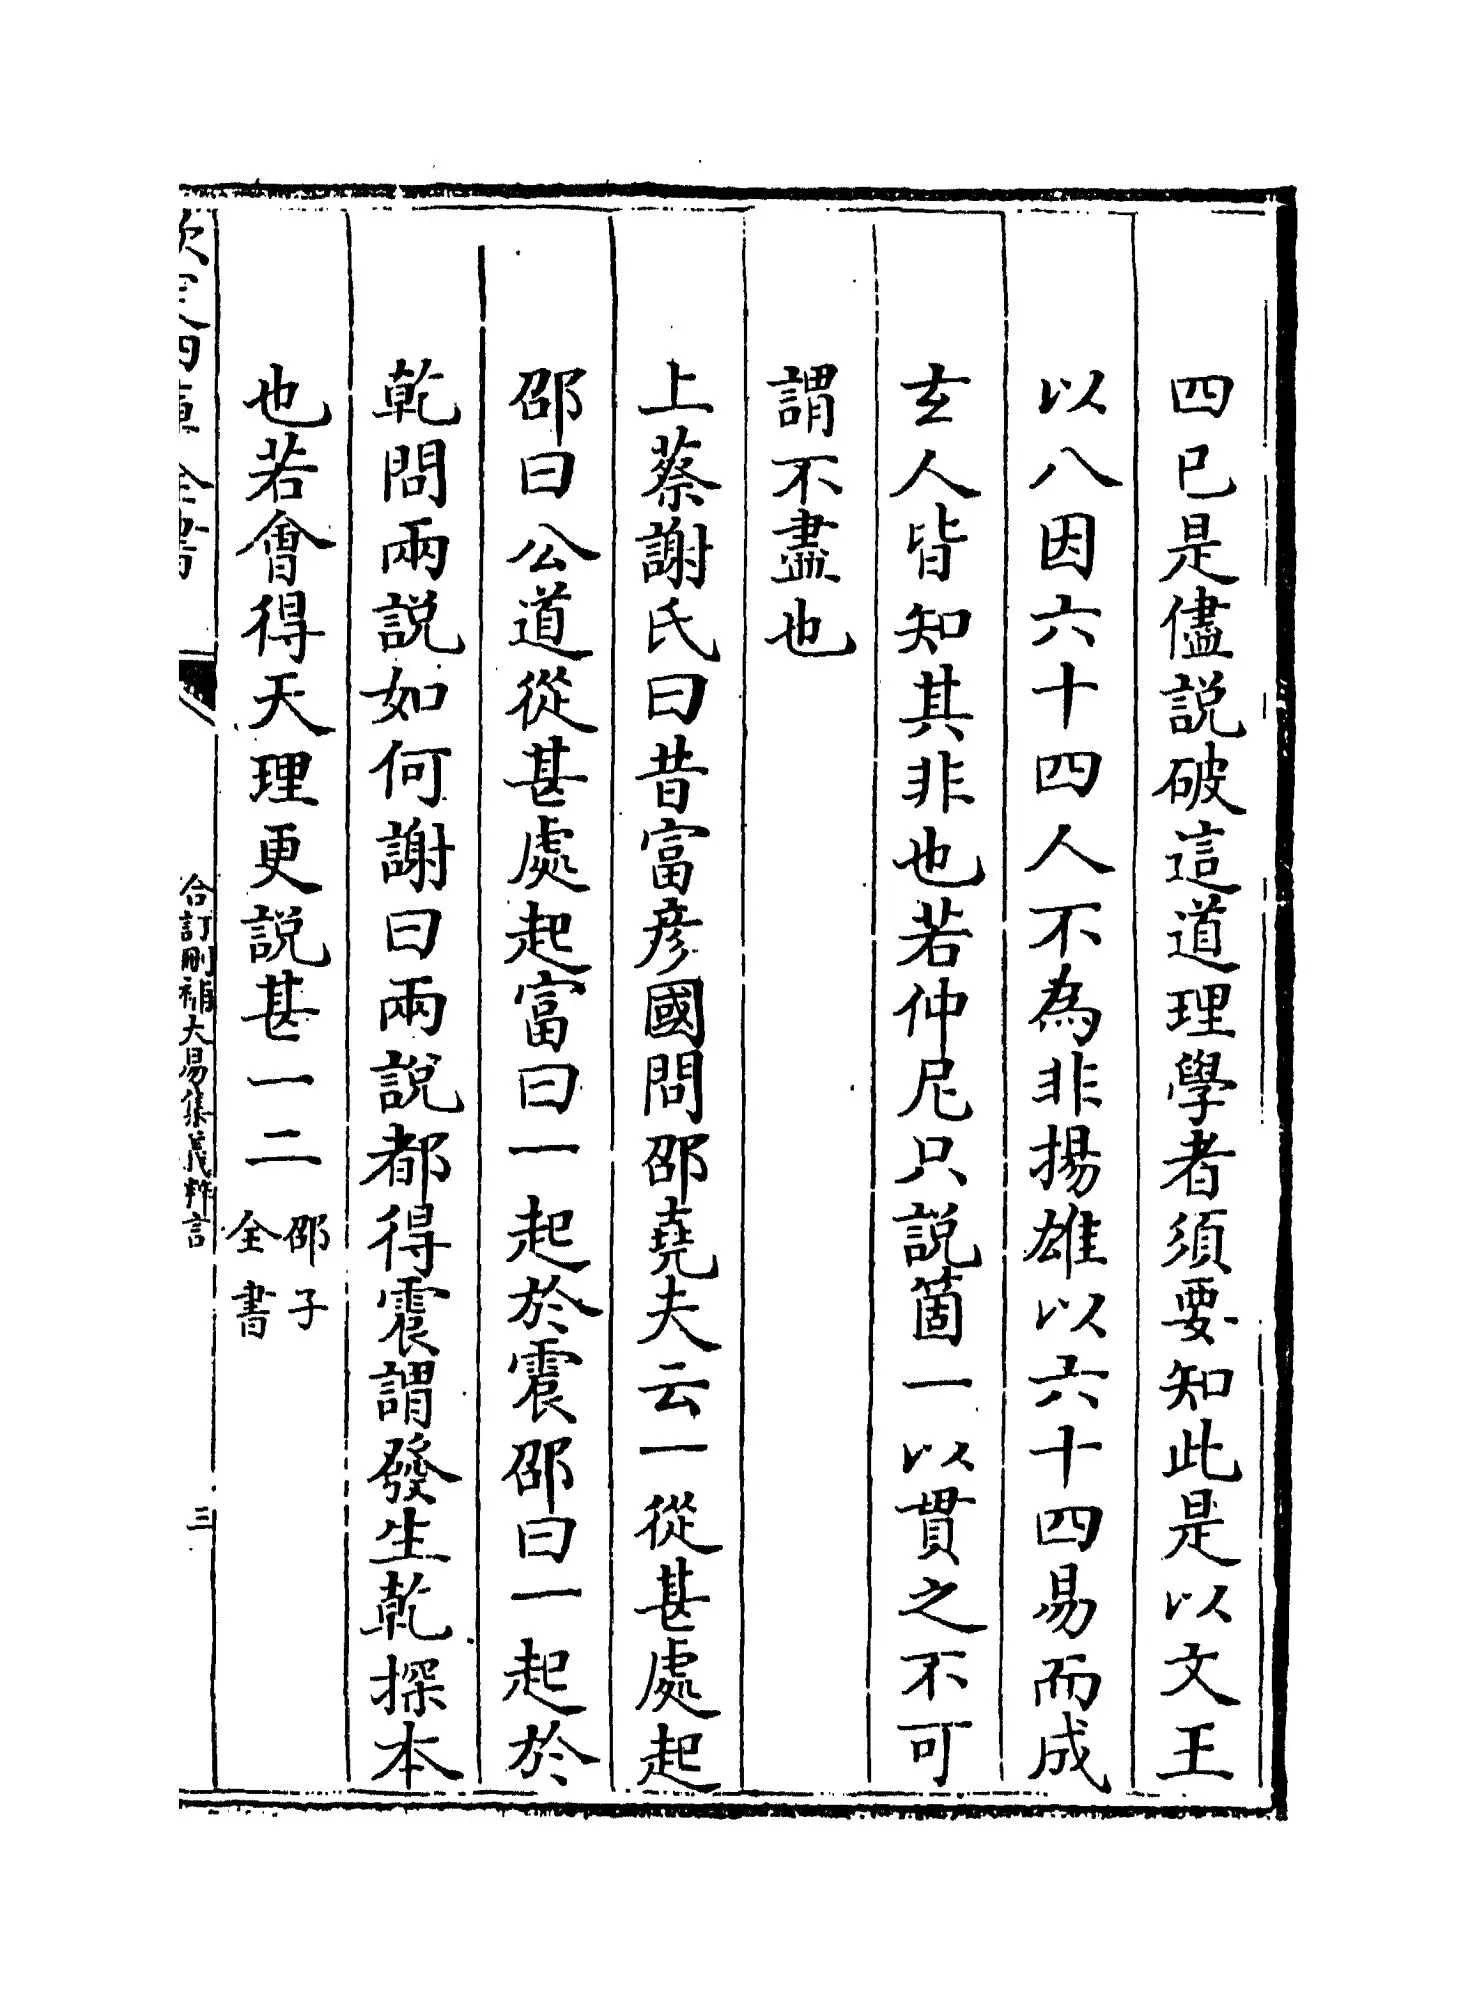 四已是儘説破這道理學者須要知此是以文王
以八因六十四人不為非揚雄以六十四易而成
玄人皆知其非也若仲尼只説箇一以貫之不可
謂不盡也
上蔡謝氏曰昔富彦國問邵堯夫云一從甚處起
邵曰公道從甚處起富曰一起於震邵曰一起於
乾問兩説如何謝曰兩説都得震謂發生乾探本
也若會得天理更説甚一二邵子
全書
欽定四庫全書
合訂刪補大易集義粹言
三